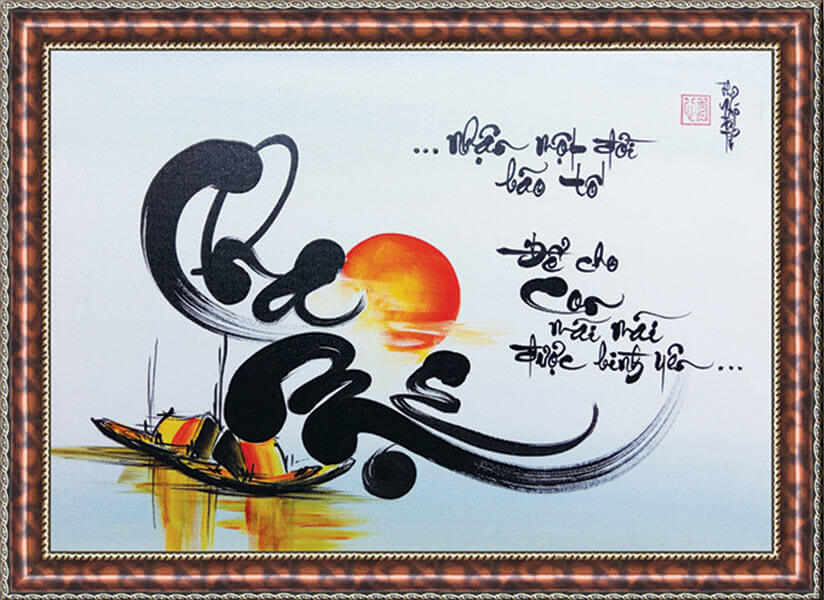 Cha
Mẹ
... nhận một đời
bão tố
Để cho
con
mãi mãi
được bình yên ...